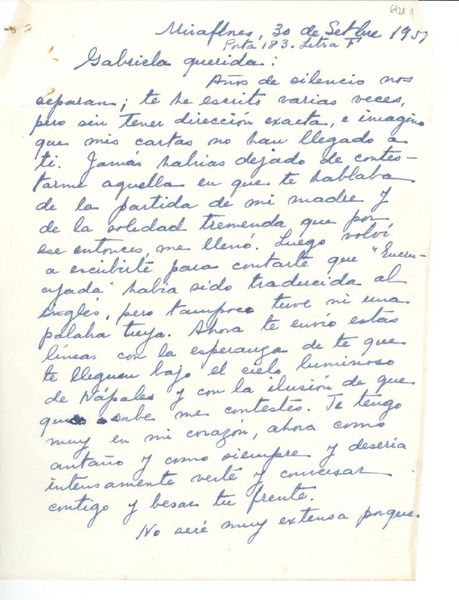 Miraflores, 30 de Setbre 195
Porta 183. Letra F
Gabriela querida:
Años de silencio nos
separan; te he escrito varias veces,
pero sin tener dirección exacta, e imagino
que mis cartas no han llegado a
ti. Jamás habías dejado de contes-
tarme aquella en que te hablaba
de la partida de mi madre y
de la soledad tremenda que por
ese entonces, me llenó. Luego volví
a escribirte para contarte que "Encru-
cijada" había sido traducida al
inglés, pero tampoco tuve ni una
palabra tuya. Ahora te envío estas
líneas con la esperanza de te que
te lleguen bajo el cielo luminoso
de Nápoles y con la ilusión de que
sabe me contestes. Te tengo
muy en mi corazón, ahora como
antaño y como siempre y desería
intensamente verte y conversar
contigo y besar tu frente.
No seré muy extensa porque